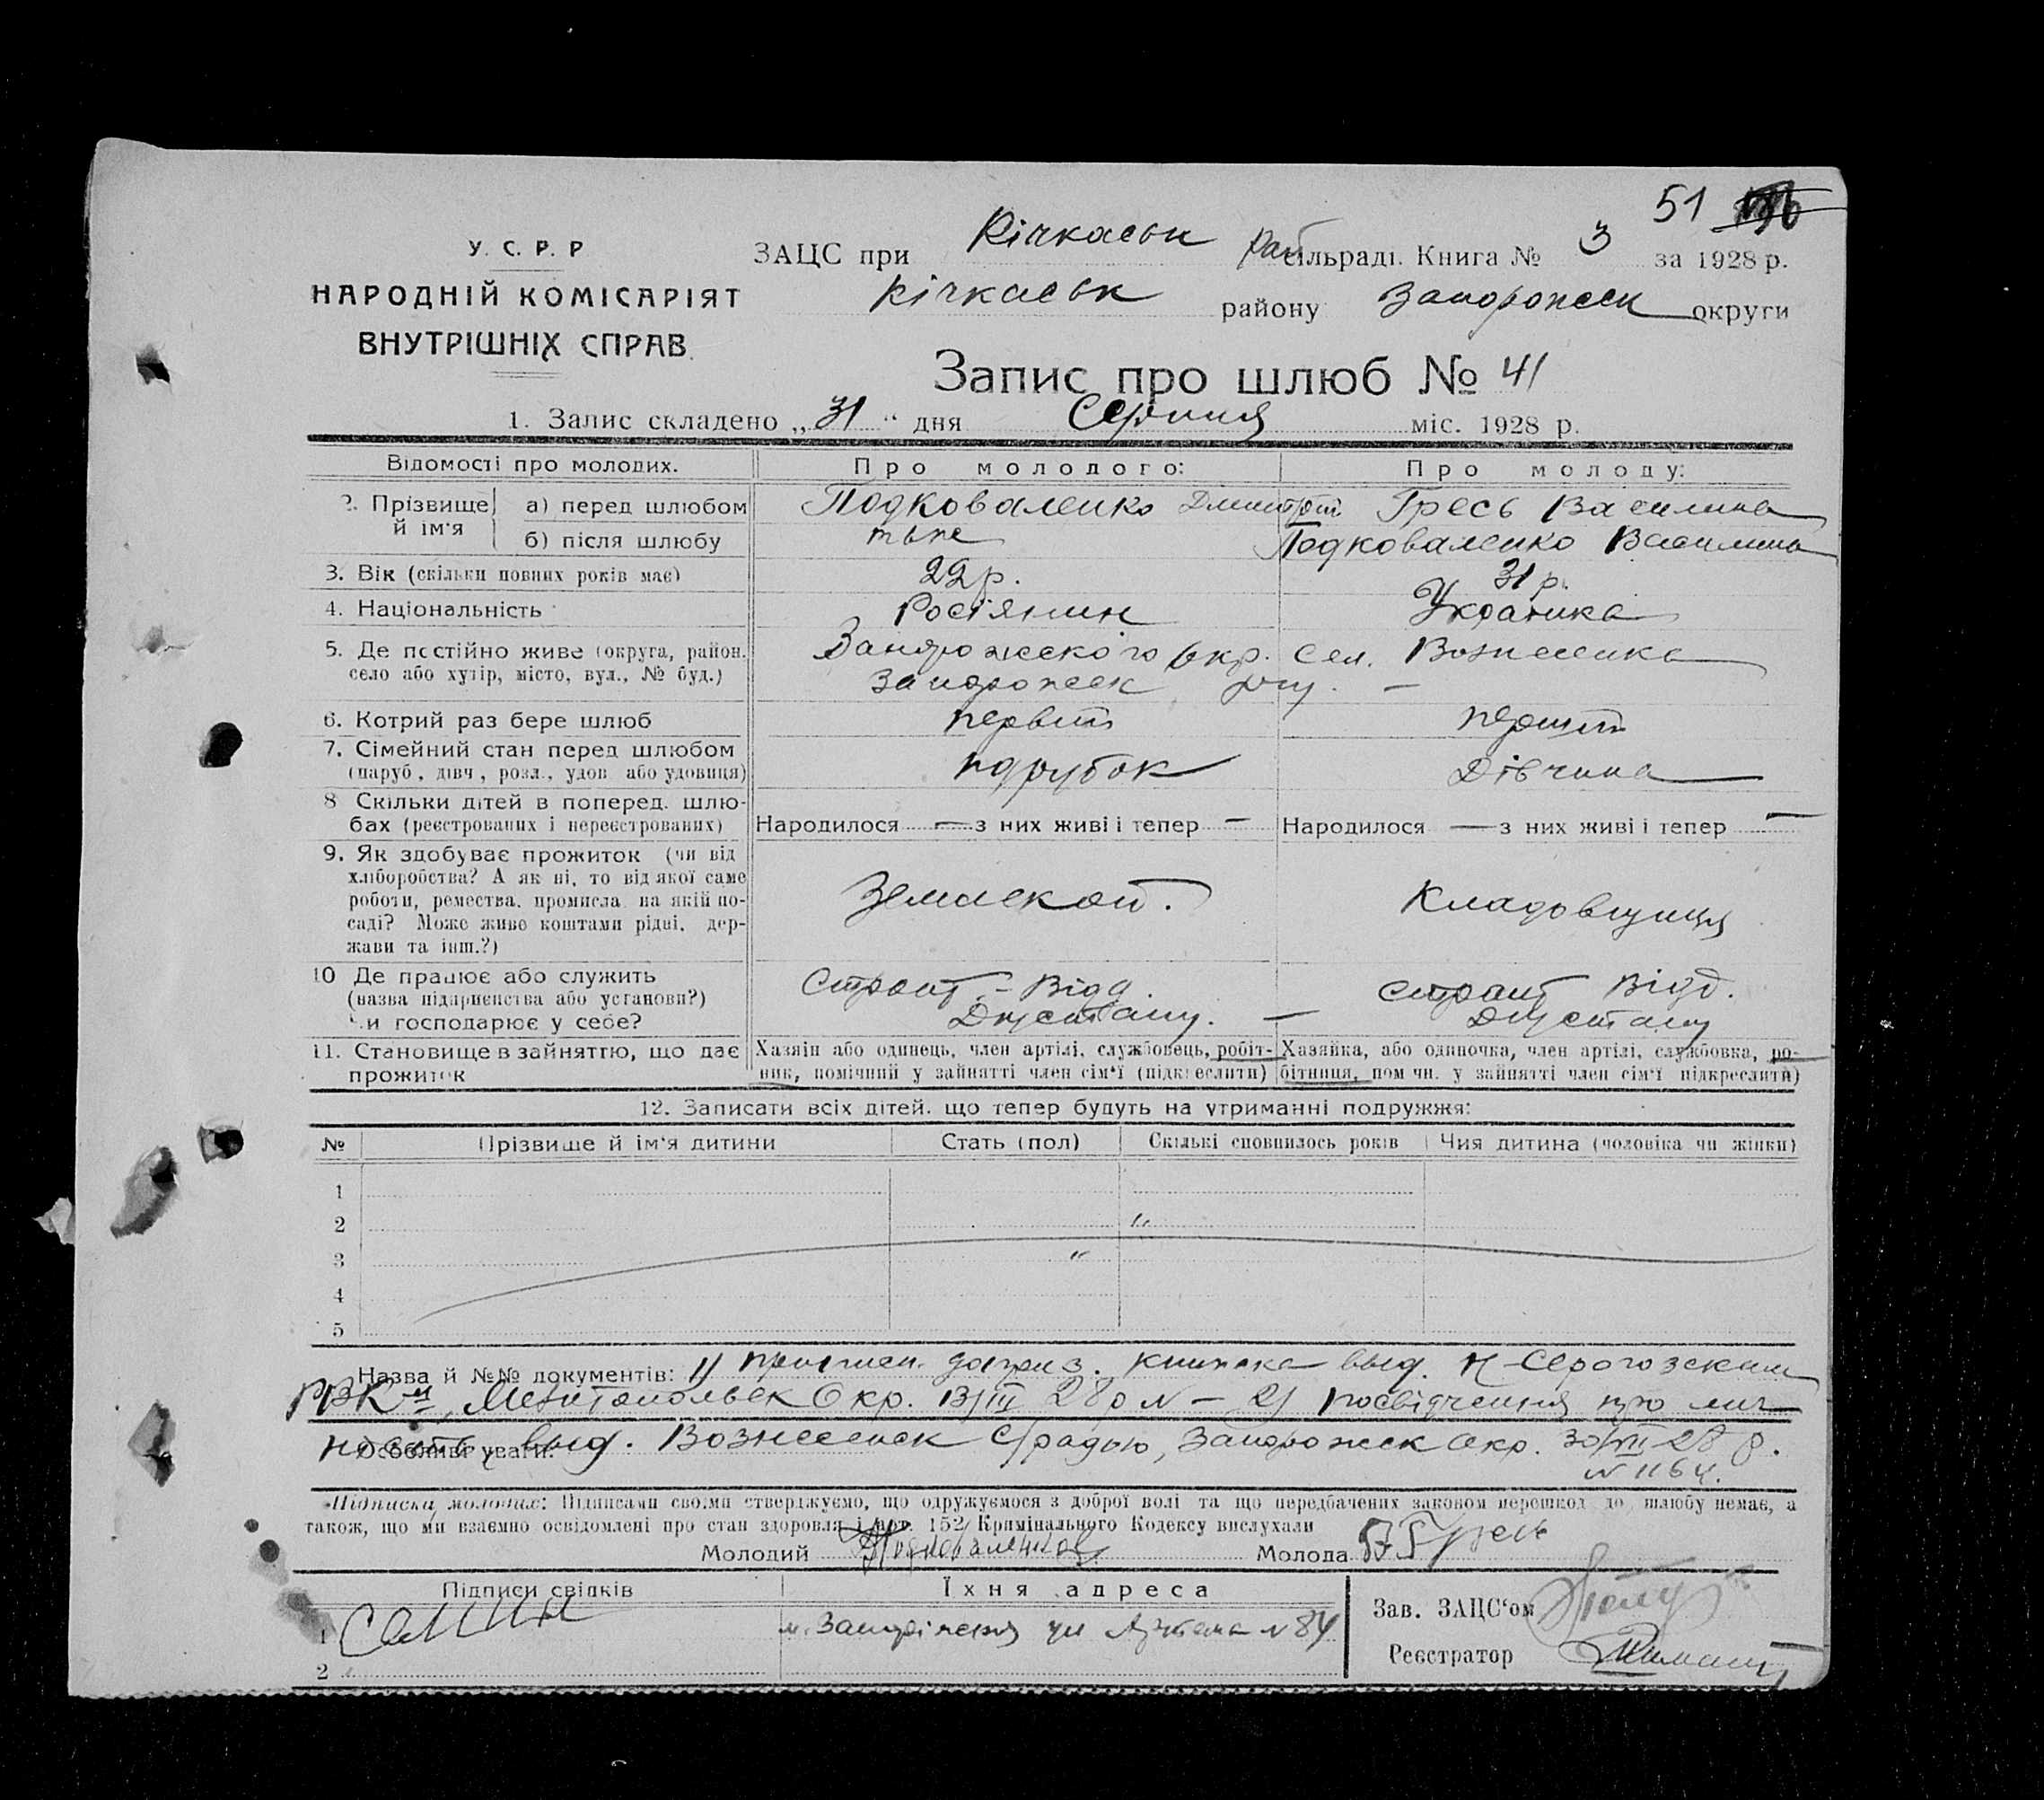 51
У. С. Р. Р
НАРОДНІЙ КОМІСАРІЯТ
ВНУТРІШНІХ СПРАВ.
ЗАЦС при Кічкаськ Рай сільраді. Книга № 3 за 1928 р.
Кічкаськ району Запорожськ округи
Запис про шлюб № 41
1. Запис складено „31“ дня Серпня міс. 1928 р.
Відомості про молодих. Про молодого: Про молоду:
2. Прізвище й ім'я а) перед шлюбом Подковаленко Дмитрій Гресь Василина
б) після шлюбу тьже Подковаленко Василина
3. Вік (скільки повних років має) 22 р. 31 р.
4. Національність Росіянин Українка
5. Де постійно живе (округа, район. Запорожського окр. Сел. Вознесенка
село або хутір, місто, вул., № буд.) Запорожськ —
6. Котрий раз бере шлюб первий перший
7. Сімейний стан перед шлюбом парубок Дівчина
(паруб, дівч, розл., удов. або удовиця)
8 Скільки дітей в поперед. шлю-
бах (реєстрованих і нереєстрованих) Народилося — з них живі і тепер — Народилося — з них живі і тепер —
9. Як здобуває прожиток (чи від
хліборобства? А як ні, то від якої саме
роботи, ремества, промисла на якій по- Землекоп. Кладовщиця
саді? Може живе коштами рідні, дер-
жави та інш.?)
10 Де працює або служить Строит. - Відд. Строит Відд.
(назва підприємства або установи?)
Чи господарює у себе? Днепрельстану. — Днепрельстану
11. Становище в зайняттю, що дає Хазяін або одинець, член артілі, службовець, робіт- Хазяйка, або одиночка, член артілі, службовка, ро-
прожиток ник, помічний у зайнятті член сім'ї (підкреслити) бітниця, пом чн. у зайнятті член сім'ї підкреслити)
12. Записати всіх дітей, що тепер будуть на утриманні подружжя:
№ Прізвище й ім'я дитини Стать (пол) Скількі сповнилось років Чия дитина (чоловіка чи жінки)
1
2 "
3 "
4
5
Назва й №№ документів: 1) книжка выд. Н-Серогозским
РВКм, Мелитопольск Окр. 28 р № — 2) посвідчення про лич-
Особливі уваги: ность, выд. Вознесенск С/радою, Запорожск Окр. 30/VII-28 р.
№ 1164.
Підписки молодих: Підписами своїми стверджуємо, що одружуємося з доброї волі та що передбачених законом перешкод до шлюбу немає, а
також, що ми взаємно освідомлені про стан здоровля і арт. 152 Кримінального Кодексу вислухали
Молодий Подковаленков Молода Гресь
Підписи свідків Їхня адреса
Зав. ЗАЦС'ом
1 м. Запоріжжя ул Артема № 84
Реєстратор
2